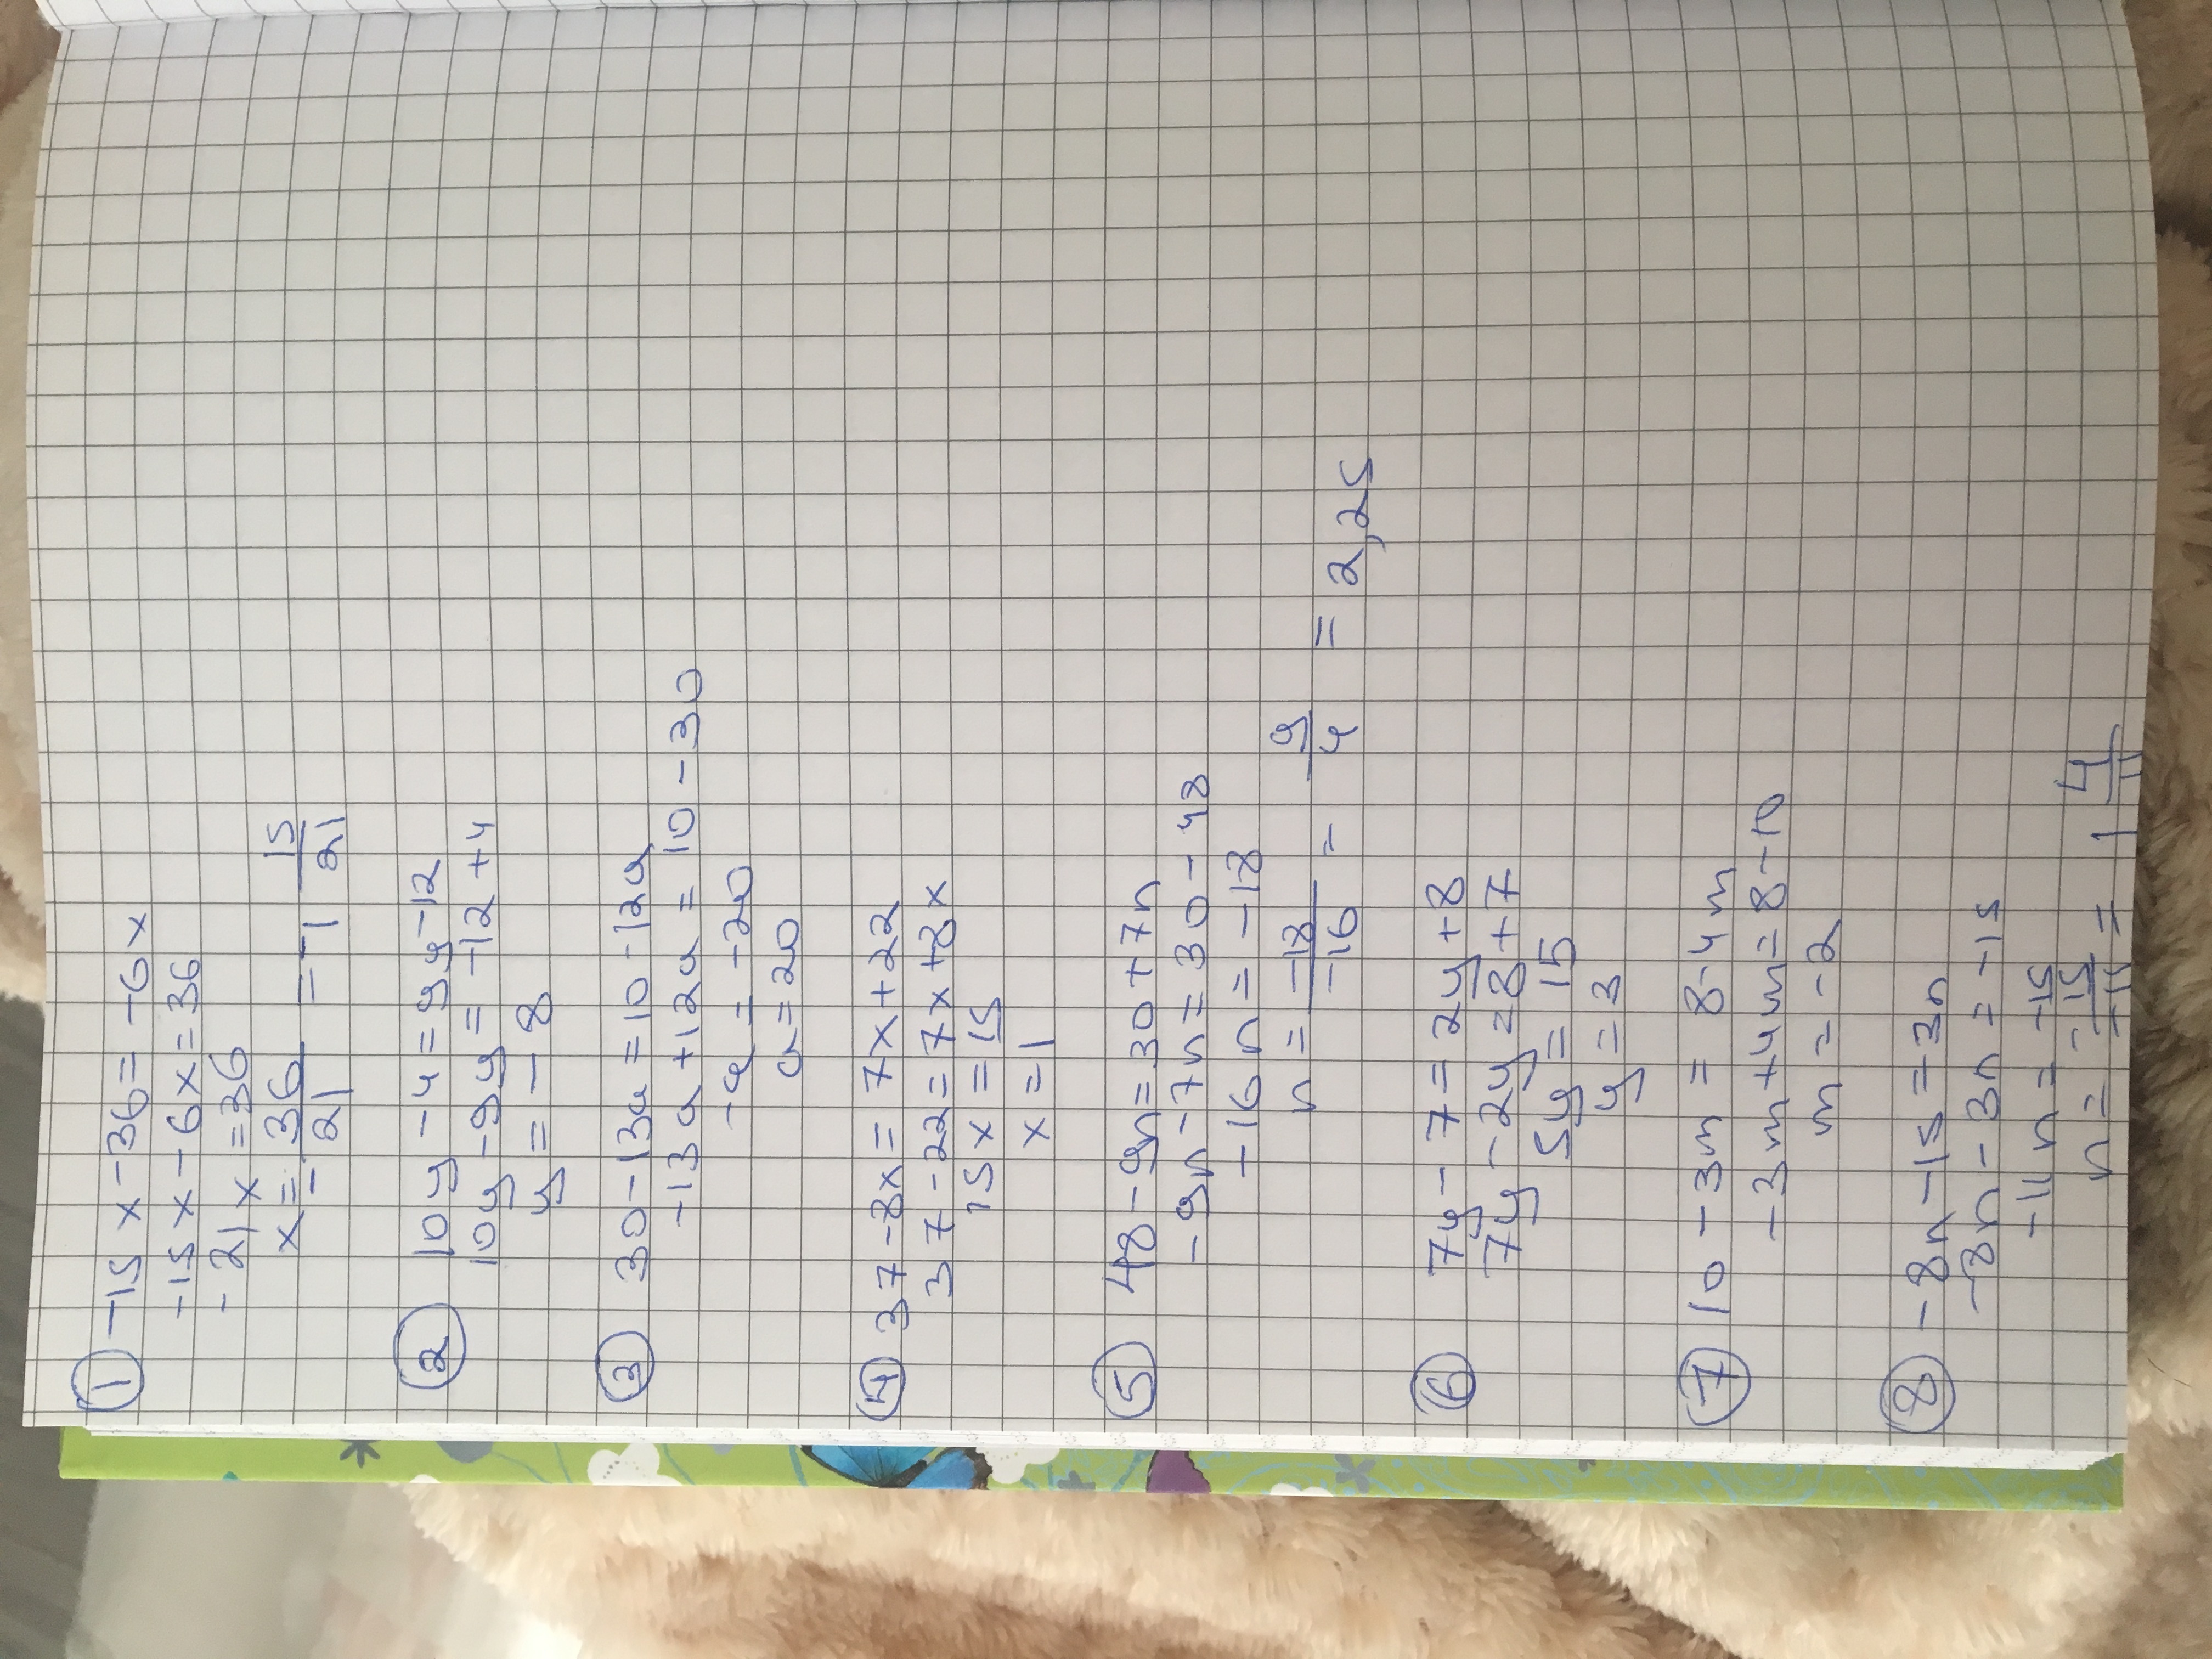 ① -15x-36=-6x
-15x-6x=36
-21x=36
x=-36/21=-1 15/21
② 10y-4=9y-12
10y-9y=-12+4
y=-8
③ 30-13a=10-12a
-13a+12a=10-30
-a=-20
a=20
④ 37-8x=7x+22
37-22=7x+8x
15x=15
x=1
⑤ 48-9n=30+7n
-9n-7n=30-48
-16n=-18
n=-18/-16=9/4=2,25
⑥ 7y-7=2y+8
7y-2y=8+7
5y=15
y=3
⑦ 10-3m=8-4m
-3m+4m=8-10
m=-2
⑧ -8n-15=3n
-8n-3n=-15
-11n=-15
n=-15/-11=1 4/11